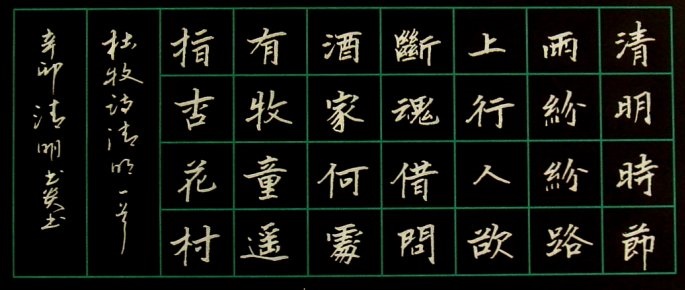 清明時節
雨紛紛路
上行人欲
斷魂借問
酒家何處
有牧童遥
指杏花村
杜牧诗清明一首
辛卯清明